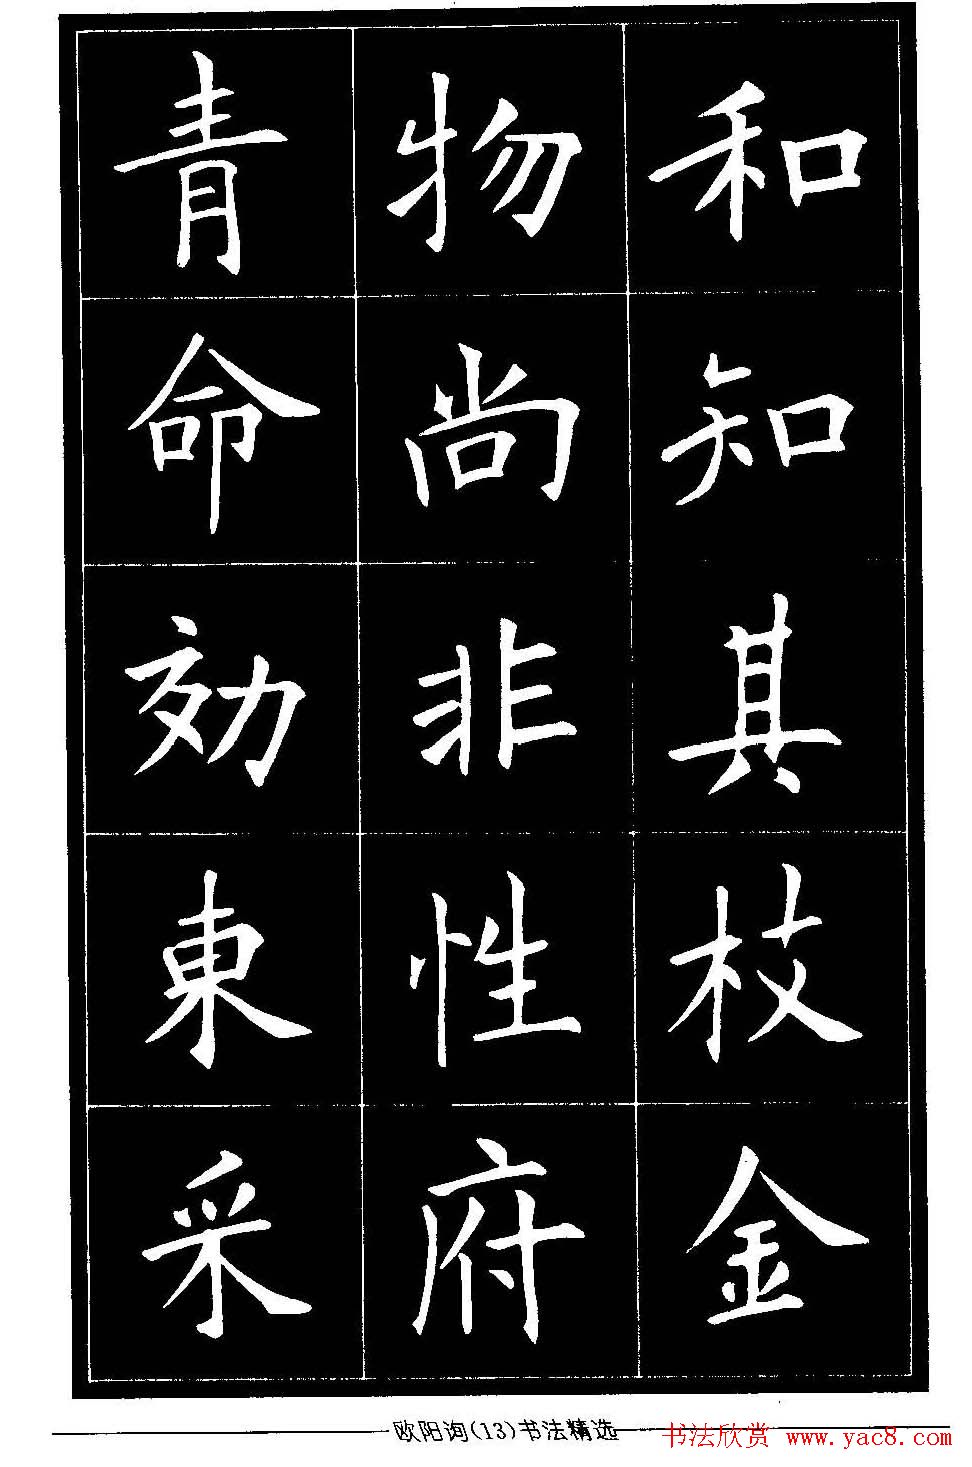 和知其枝金
物尚非性府
青命効東采
欧阳询(13)书法精选
书法欣赏 www.yac8.com